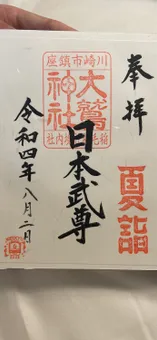 奉拝
夏詣
川崎市鎮座
大鷲神社
境内社
日本武尊
令和四年八月二日